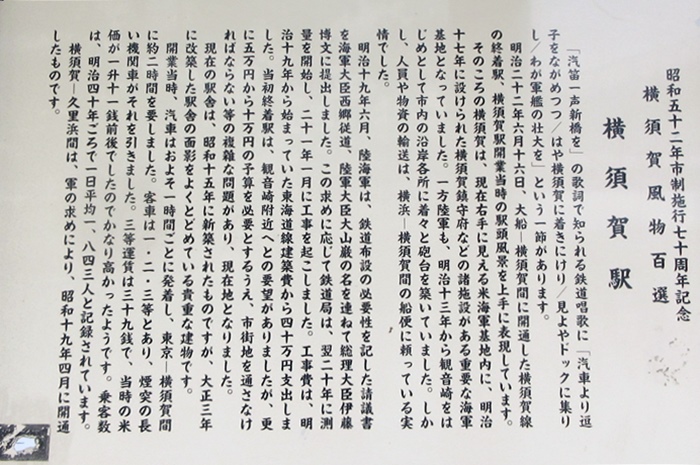 昭和五十二年市制施行七十周年記念
横須賀風物百選
横須賀駅
「汽笛一声新橋を」の歌詞で知られる鉄道唱歌に「汽車より逗
子をながめつつ／はや横須賀に着きにけり／見よやドックに集り
し／わが軍艦の壮大を」という一節があります。
明治二十二年六月十六日、大船―横須賀間に開通した横須賀線
の終着駅、横須賀駅開業当時の駅頭風景を上手に表現しています。
そのころの横須賀は、現在右手に見える米海軍基地内に、明治
十七年に設けられた横須賀鎮守府などの諸施設がある重要な海軍
基地となっていました。一方陸軍も、明治十三年から観音崎をは
じめとして市内の沿岸各所に着々と砲台を築いていました。しか
し、人員や物資の輸送は、横浜―横須賀間の船便に頼っている実
情でした。
明治十九年六月、陸海軍は、鉄道布設の必要性を記した請議書
を海軍大臣西郷従道、陸軍大臣大山巌の名を連ねて総理大臣伊藤
博文に提出しました。この求めに応じて鉄道局は、翌二十年に測
量を開始し、二十一年一月に工事を起こしました。工事費は、明
治十九年から始まっていた東海道線建築費から四十万円支出しま
した。当初終着駅は、観音崎附近へとの要望がありましたが、更
に五万円から十万円の予算を必要とするうえ、市街地を通さなけ
ればならない等の複雑な問題があり、現在地となりました。
現在の駅舎は、昭和十五年に新築されたものですが、大正三年
に改築した駅舎の面影をよくとどめている貴重な建物です。
開業当時、汽車はおよそ一時間ごとに発着し、東京―横須賀間
に約二時間を要しました。客車は一・二・三等とあり、煙突の長
い機関車がそれを引きました。三等運賃は三十九銭で、当時の米
価が一升十一銭前後でしたのでかなり高かったようです。乗客数
は、明治四十年ごろで一日平均一、八四三人と記録されています。
横須賀―久里浜間は、軍の求めにより、昭和十九年四月に開通
したものです。